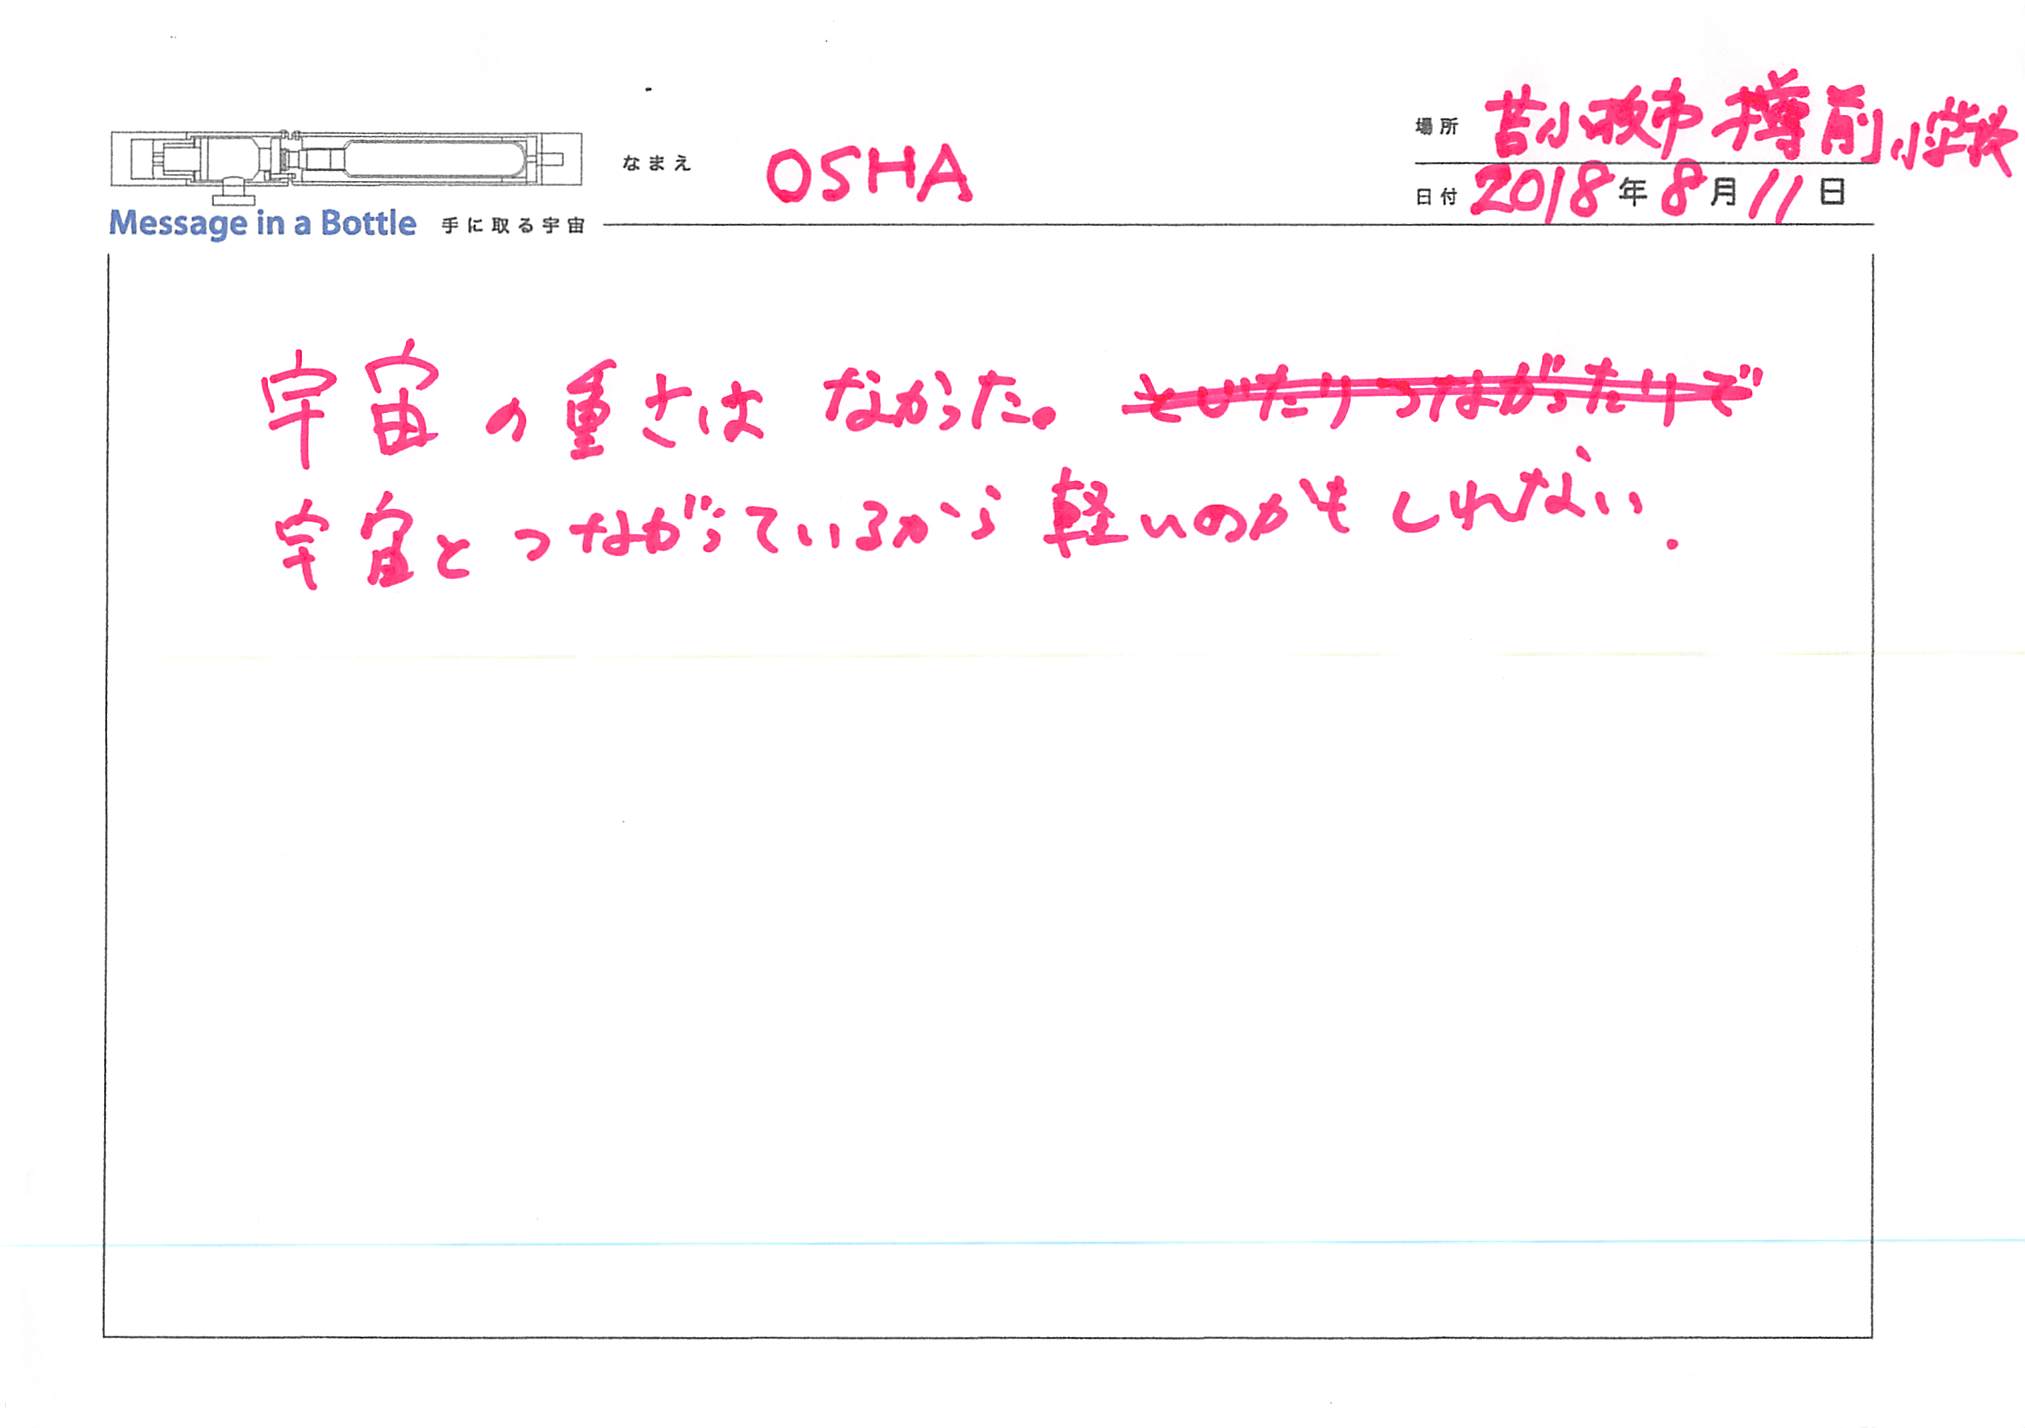 場所 苫小牧市 樽前小学校
なまえ OSHA
日付 2018年8月11日
Message in a Bottle 手に取る宇宙
宇宙の重さは なかった。
宇宙とつながっているから 軽いのかもしれない.